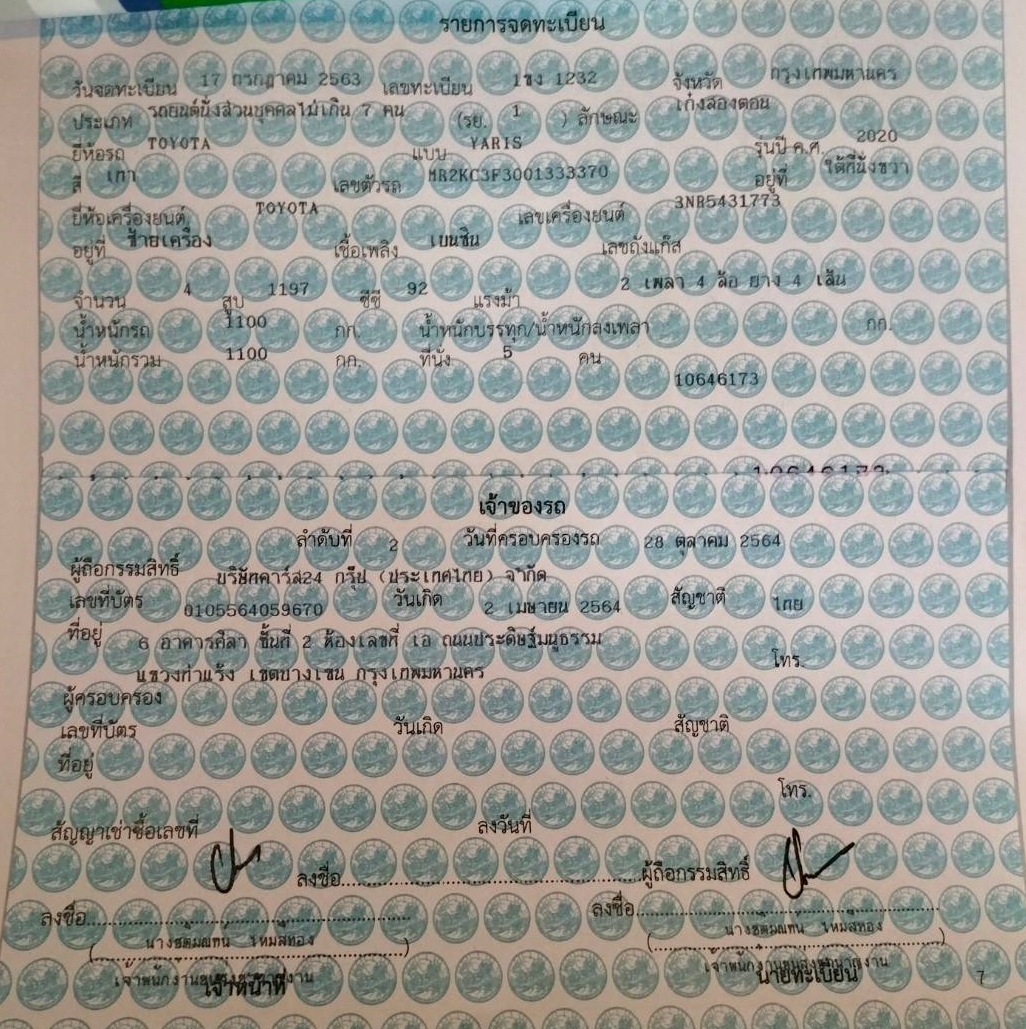 รายการจดทะเบียน
วันจดทะเบียน 17 กรกฎาคม 2563 เลขทะเบียน 1ขง 1232 จังหวัด กรุงเทพมหานคร
ประเภท รถยนต์นั่งส่วนบุคคลไม่เกิน 7 คน (รย. 1 ) ลักษณะ เก๋งสองตอน
ยี่ห้อรถ TOYOTA แบบ YARIS รุ่นปี ค.ศ. 2020
สี เทา เลขตัวรถ MR2KC3F3001333370 อยู่ที่ ใต้ที่นั่งขวา
ยี่ห้อเครื่องยนต์ TOYOTA เลขเครื่องยนต์ 3NR5431773
อยู่ที่ ซ้ายเครื่อง เชื้อเพลิง เบนซิน เลขถังแก๊ส
จำนวน 4 สูบ 1197 ซีซี 92 แรงม้า 2 เพลา 4 ล้อ ยาง 4 เส้น
น้ำหนักรถ 1100 กก. น้ำหนักบรรทุก/น้ำหนักลงเพลา กก.
น้ำหนักรวม 1100 กก. ที่นั่ง 5 คน
10646173
10646173
เจ้าของรถ
ลำดับที่ 2 วันที่ครอบครองรถ 28 ตุลาคม 2564
ผู้ถือกรรมสิทธิ์ บริษัทคาร์ส24 กรุ๊ป (ประเทศไทย) จำกัด
เลขที่บัตร 0105564059670 วันเกิด 2 เมษายน 2564 สัญชาติ ไทย
ที่อยู่ 6 อาคารศิลา ชั้นที่ 2 ห้องเลขที่ เอ ถนนประดิษฐ์มนูธรรม
แขวงท่าแร้ง เขตบางเขน กรุงเทพมหานคร โทร.
ผู้ครอบครอง
เลขที่บัตร วันเกิด สัญชาติ
ที่อยู่
โทร.
สัญญาเช่าซื้อเลขที่ ลงวันที่
ลงชื่อ ผู้ถือกรรมสิทธิ์
ลงชื่อ ลงชื่อ
เจ้าหน้าที่ นายทะเบียน
7